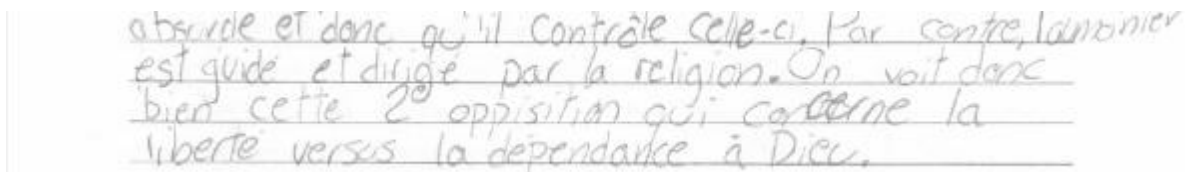 absurde et donc qu'il contrôle celle-ci. Par contre, l'amonier
est guidé et dirigé par la religion. On voit donc
bien cette 2e oppisition qui concerne la
liberté versus la dépendance à Dieu.